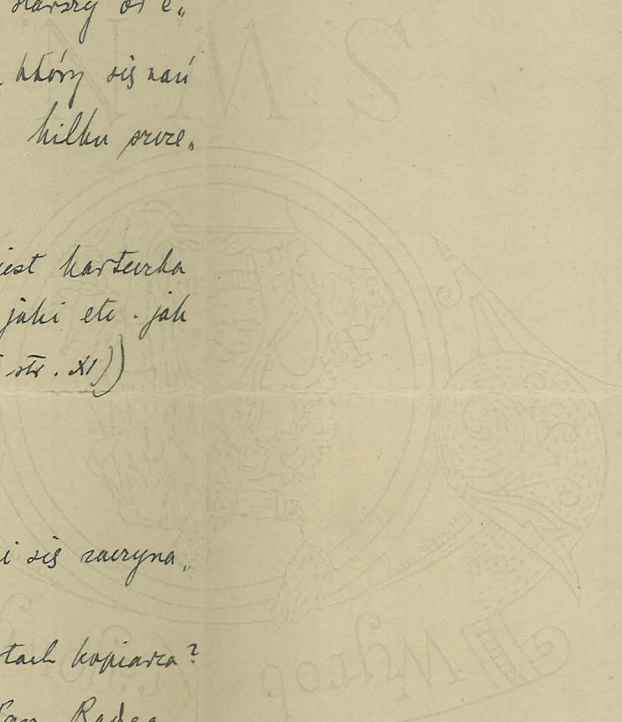 starszy od e„
który się nań
kilku szcze„
jest karteczka
jaki etc. jak
str. XI))
i się zaczyna„
tach kopiarza?
Pan Radca
S M N
Wyrob